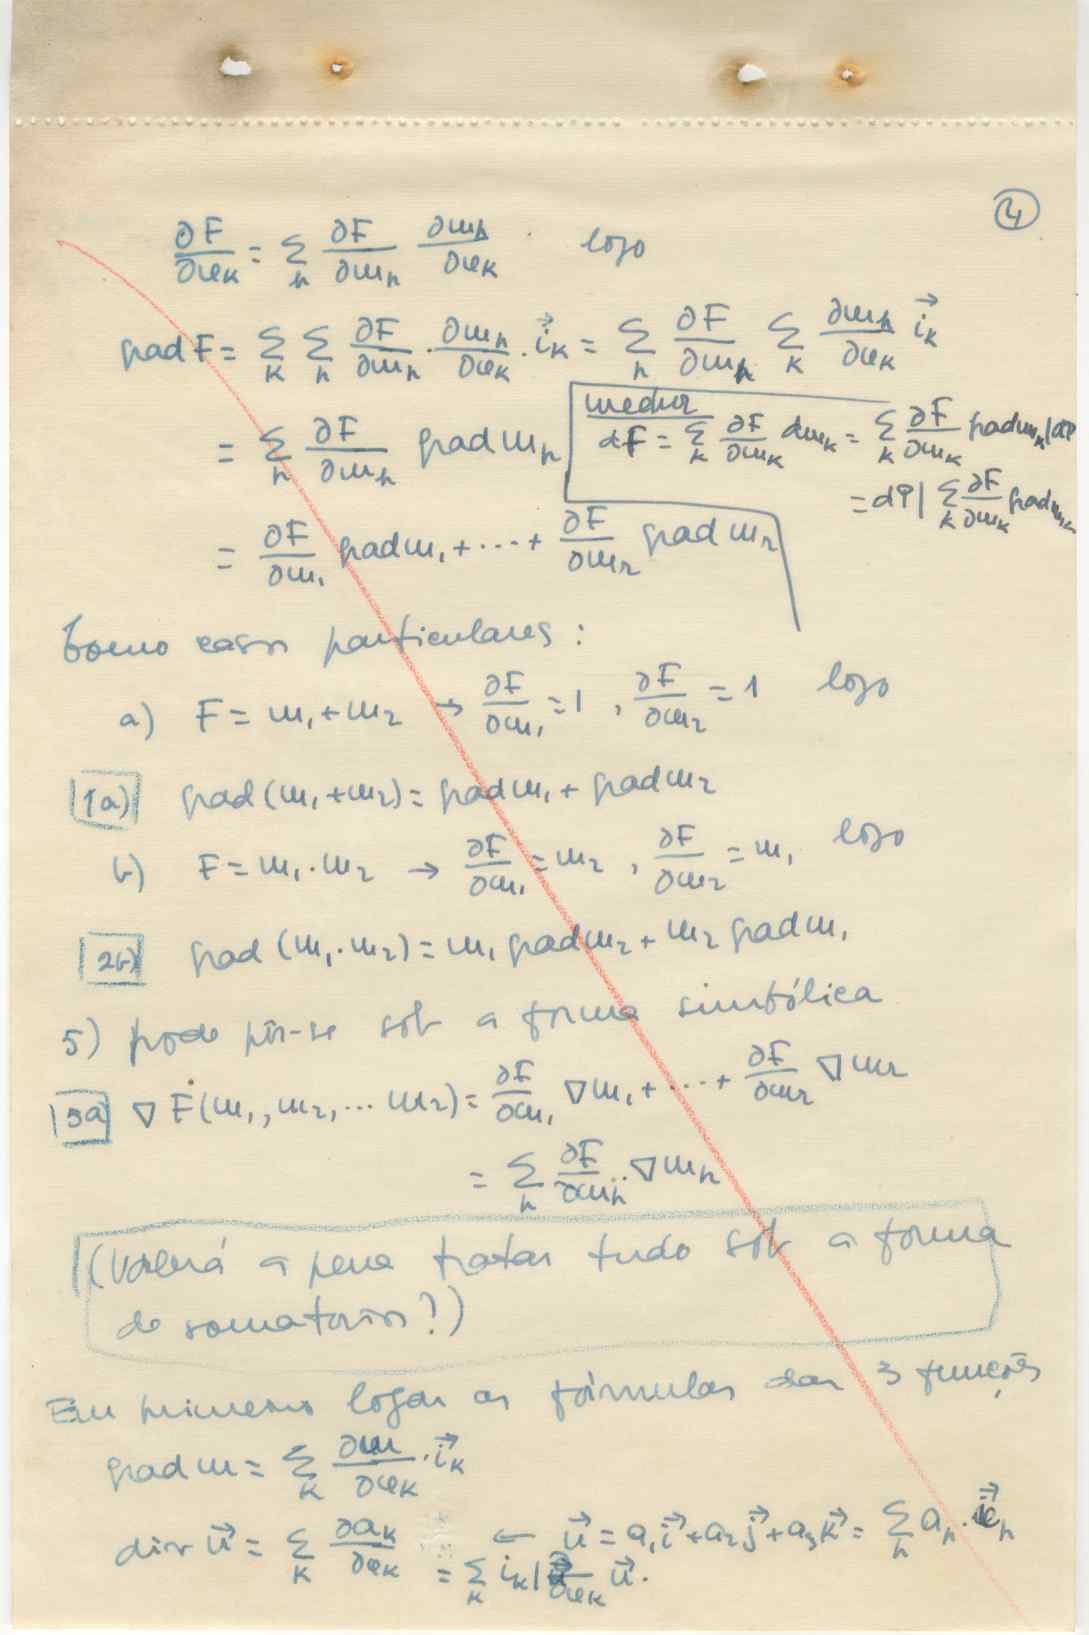 ④
∂F/∂x_k = Σ_h ∂F/∂m_h ∂m_h/∂x_k . logo
grad F = Σ_k Σ_h ∂F/∂m_h . ∂m_h/∂x_k . i⃗_k = Σ_h ∂F/∂m_h Σ_k ∂m_h/∂x_k i⃗_k
= Σ_h ∂F/∂m_h grad m_h
melhor
dF = Σ_k ∂F/∂m_k dm_k = Σ_k ∂F/∂m_k grad m_k | dP
= dP | Σ_k ∂F/∂m_k grad m_k
= ∂F/∂m₁ grad m₁ + ... + ∂F/∂m_r grad m_r
Como casos particulares :
a) F = m₁ + m₂ → ∂F/∂m₁ = 1 , ∂F/∂m₂ = 1 logo
1a) grad (m₁ + m₂) = grad m₁ + grad m₂
b) F = m₁ . m₂ → ∂F/∂m₁ = m₂ , ∂F/∂m₂ = m₁ logo
2b) grad (m₁ . m₂) = m₁ grad m₂ + m₂ grad m₁
5) pode pôr-se sob a forma simbólica
3a ∇ F(m₁, m₂, ... m_r) = ∂F/∂m₁ ∇m₁ + ... + ∂F/∂m_r ∇m_r
= Σ_h ∂F/∂m_h . ∇m_h
(Valerá a pena tratar tudo sob a forma
de somatórios?)
Em primeiro lugar as fórmulas das 3 funções
grad m = Σ_k ∂m/∂x_k . i⃗_k
div u⃗ = Σ_k ∂a_k/∂x_k ← u⃗ = a₁i⃗ + a₂j⃗ + a₃k⃗ = Σ_h a_h . i⃗_h
= Σ_k i_k | ∂/∂x_k u⃗.